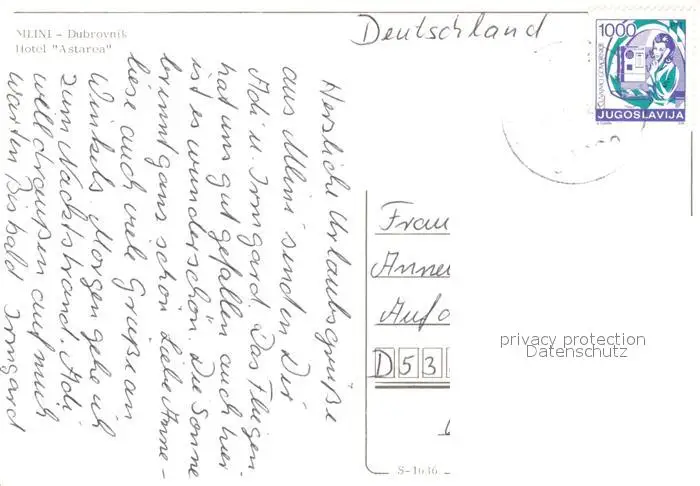 MLINI - Dubrovnik
Hotel "Astarea"
Deutschland
1000
JUGOSLAVIJA
Herzliche Urlaubsgrüße
aus Mlini senden Dir
Adi u. Irmgard. Das Fliegen
hat uns gut gefallen auch hier
ist es wunderschön. Die Sonne
brennt ganz schön. Liebe Anne-
liese auch viele Grüße an
Winkels. Morgen gehe ich
zum Nacktstrand. Adi
will draußen auf mich
warten Bis bald Irmgard
Frau
Anne
Auf
D 5 3
privacy protection
Datenschutz
S-1636